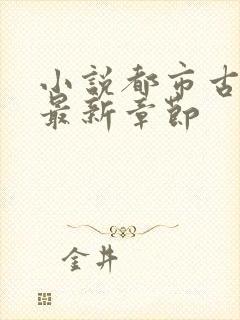 小説都市古
最新章節
金井